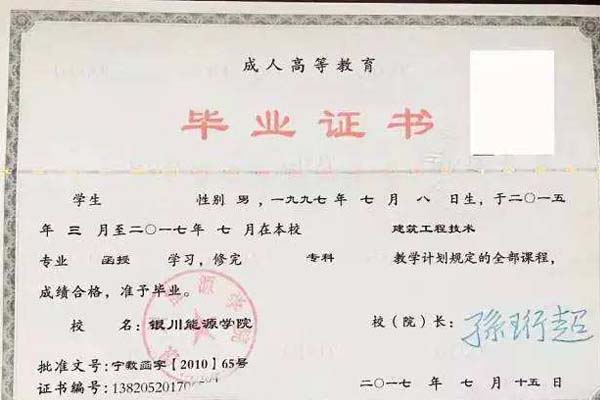 成人高等教育
毕业证书
学生 性别 男，一九九七年 七 月 八 日生，于二〇一五
年 三 月至二〇一七年 七 月在本校 建筑工程技术
专业 函授 学习，修完 专科 教学计划规定的全部课程，
成绩合格，准予毕业。
校 名：银川能源学院 校（院）长：
批准文号：宁教函字【2010】65号
证书编号：13820520170 二〇一七年 七 月 十五 日